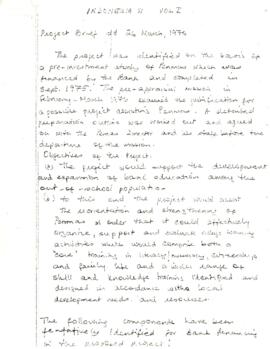 INDONESIA II VOL I
Project Brief dd 26 March, 1976
The project was identified on the basis of
a pre-investment study of Penmas which was
financed by the Bank and completed in
Sept. 1975. The pre-appraisal mission in
February-March 1976 examined the justification for
a possible project assisting Penmas. A detailed
preparation outline was worked out and agreed
on with the Penmas Director and his staff before the
departure of the mission.
Objectives of the Project
(a) The project would support the development
and expansion of basic education among the
out-of-school population
(b) To this end the project would assist
the reorientation and strengthening of
Penmas in order that it could effectively
organize, support and evaluate learning
activities which would comprise both a
"core" training in literacy/numeracy, citizenship
and family life and a wider range of
skill and knowledge training identified and
designed in accordance with local
development needs and resources.
The following components have been
tentatively identified for bank financing
in the proposed project: